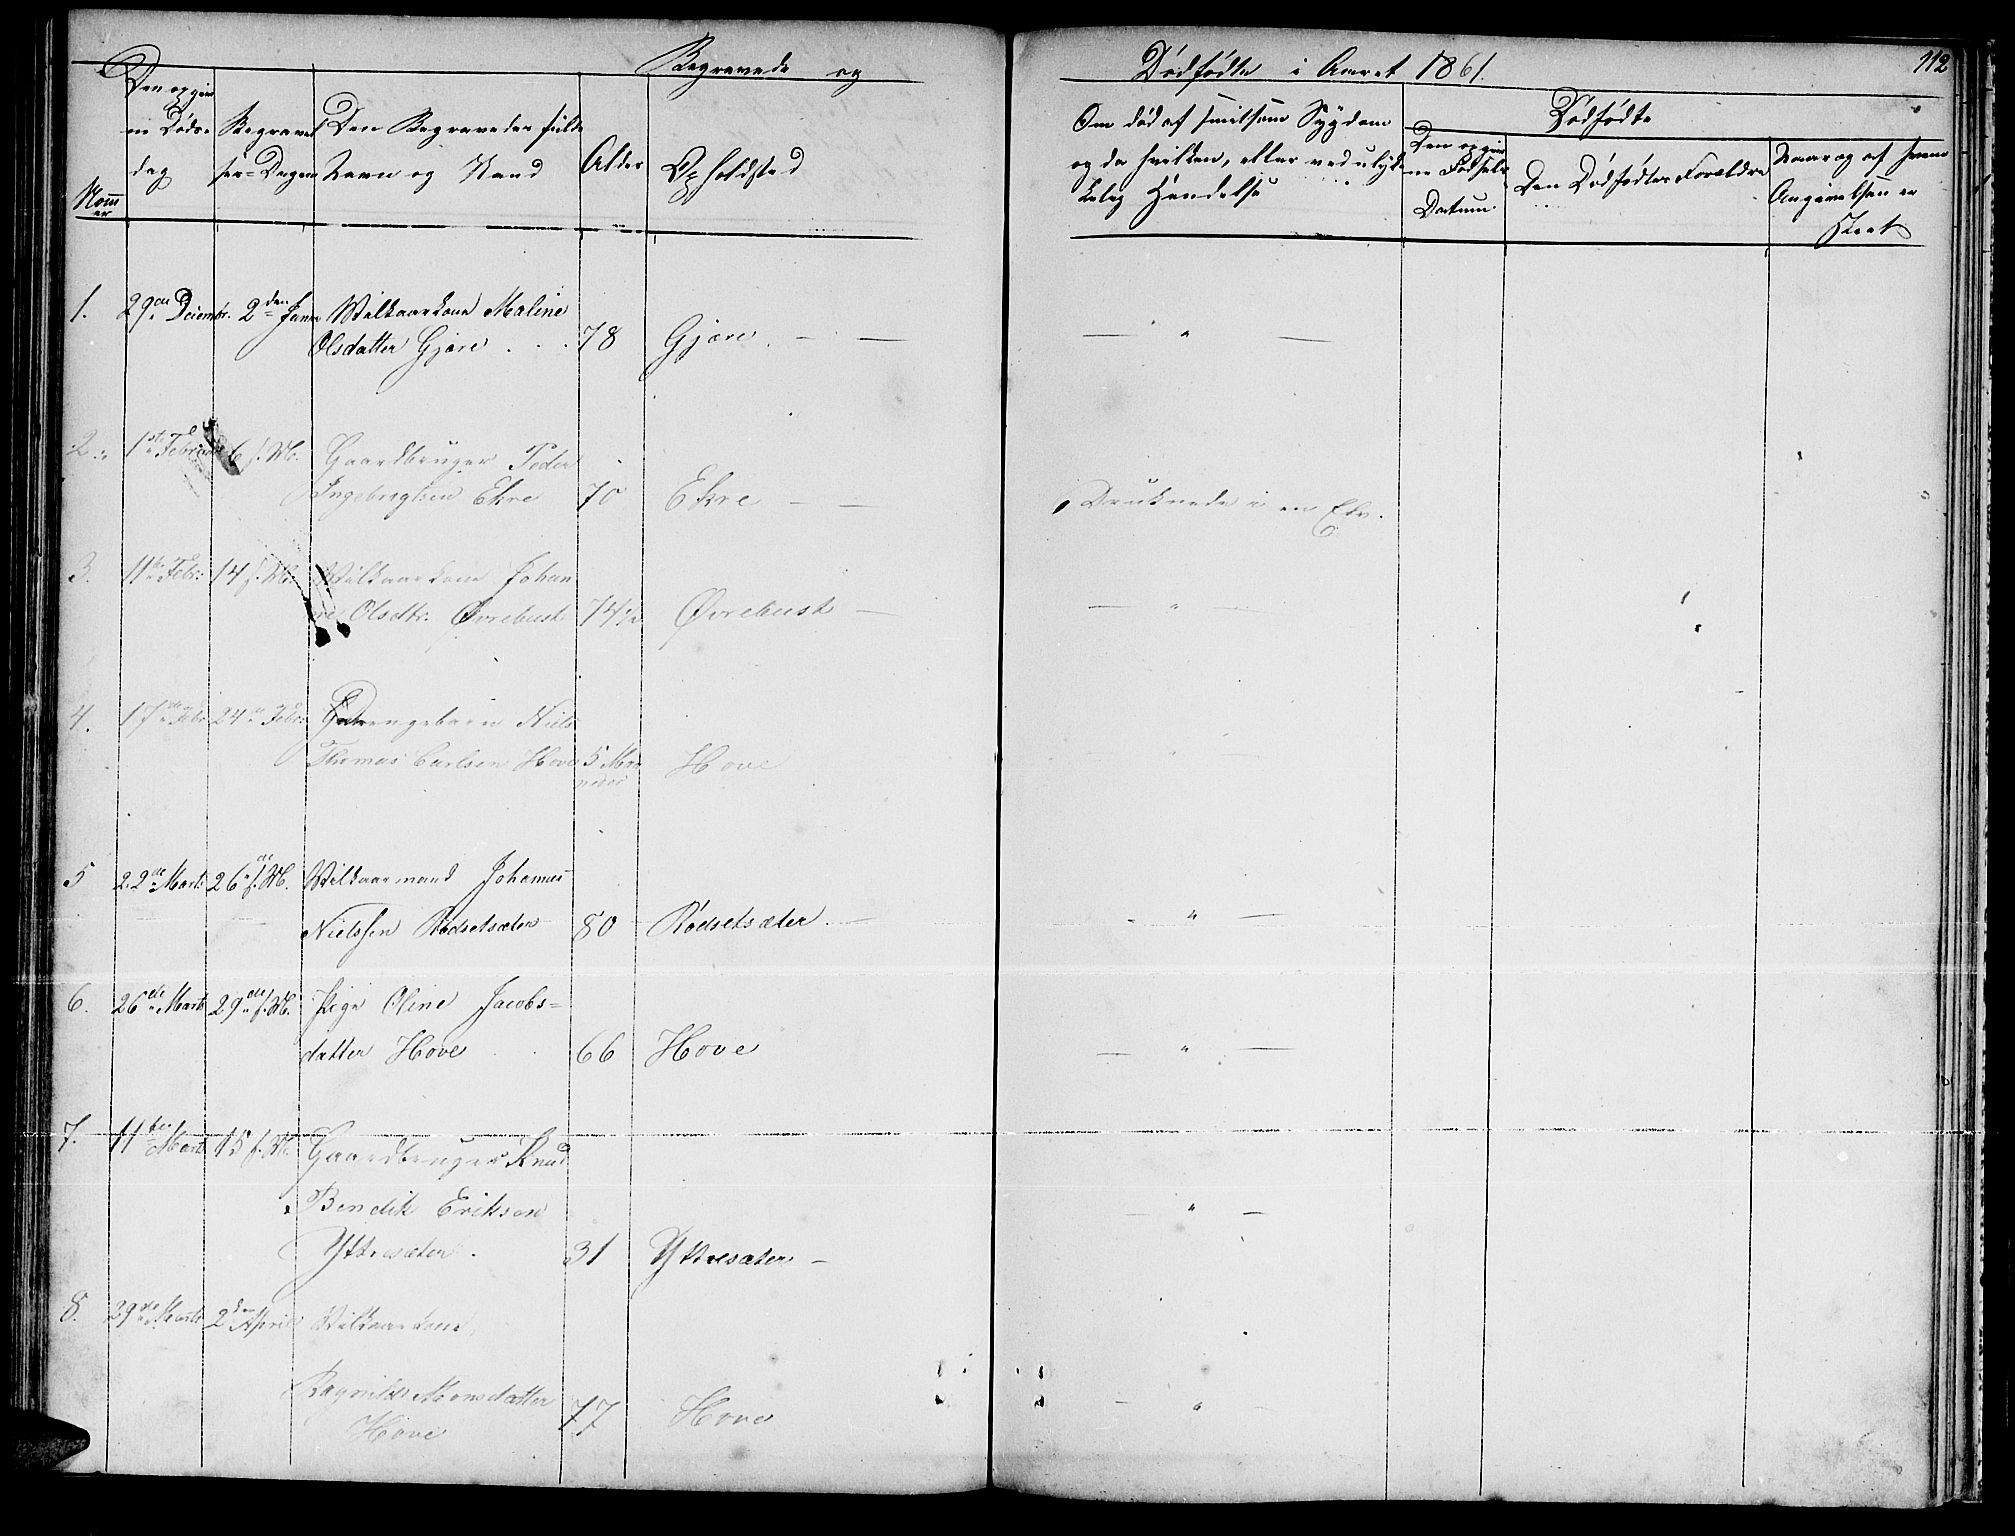 Begravede og Dødfødte i Aaret 1861. 112
Nommer
Den opgivne Dødsdag
Begravelses-Dagen
Den Begravedes fulde Navn og Stand
Alder
Opholdsted
Om død af smitsom Sygdom
og da hvilken, eller ved ulyk-
kelig Hændelse
Dødfødte
Den opgivne Fødsels Datum
Den Dødfødtes Forældre
Naar og af hvem
Angivelsen er
skeet
1. 29de Decembr. 2den Janr Wilkaarkone Maline
Olsdatter Gjære . . . 78 Gjære . — — — " —
2. 1ste Februar 6 f. M. Gaardbruger Peder
Ingebrigtsen Ekre 70 Ekre — — Druknede i en Elv.
3. 11te Febr: 14 f. M. Wilkaarkone Johan
ne Olsdtr. Øvrebust 74½ Øvrebust — — " —
4. 17de Febr 24de Febr. Drengebarn Niels
Thomas Carlsen Hove 5 Maa Hove "
neder
5 22de Marts 26de f. M. Wilkaarmand Johannes
Nielssen Rødsetsæter 80 Rødsetsæter . — — " —
6. 26de Marts 29de f. M. Pige Oline Jacobs=
datter Hove . . 66 Hove — " —
7. 11te Marts 15 f. M. Gaardbruger Knud
Bendik Eriksen — " —
Yttresæter . 31 Yttresæter —
8. 29de Marts 2den April Wilkaarkone
Ragnilde Monsdatter 77 Hove — " —
Hove